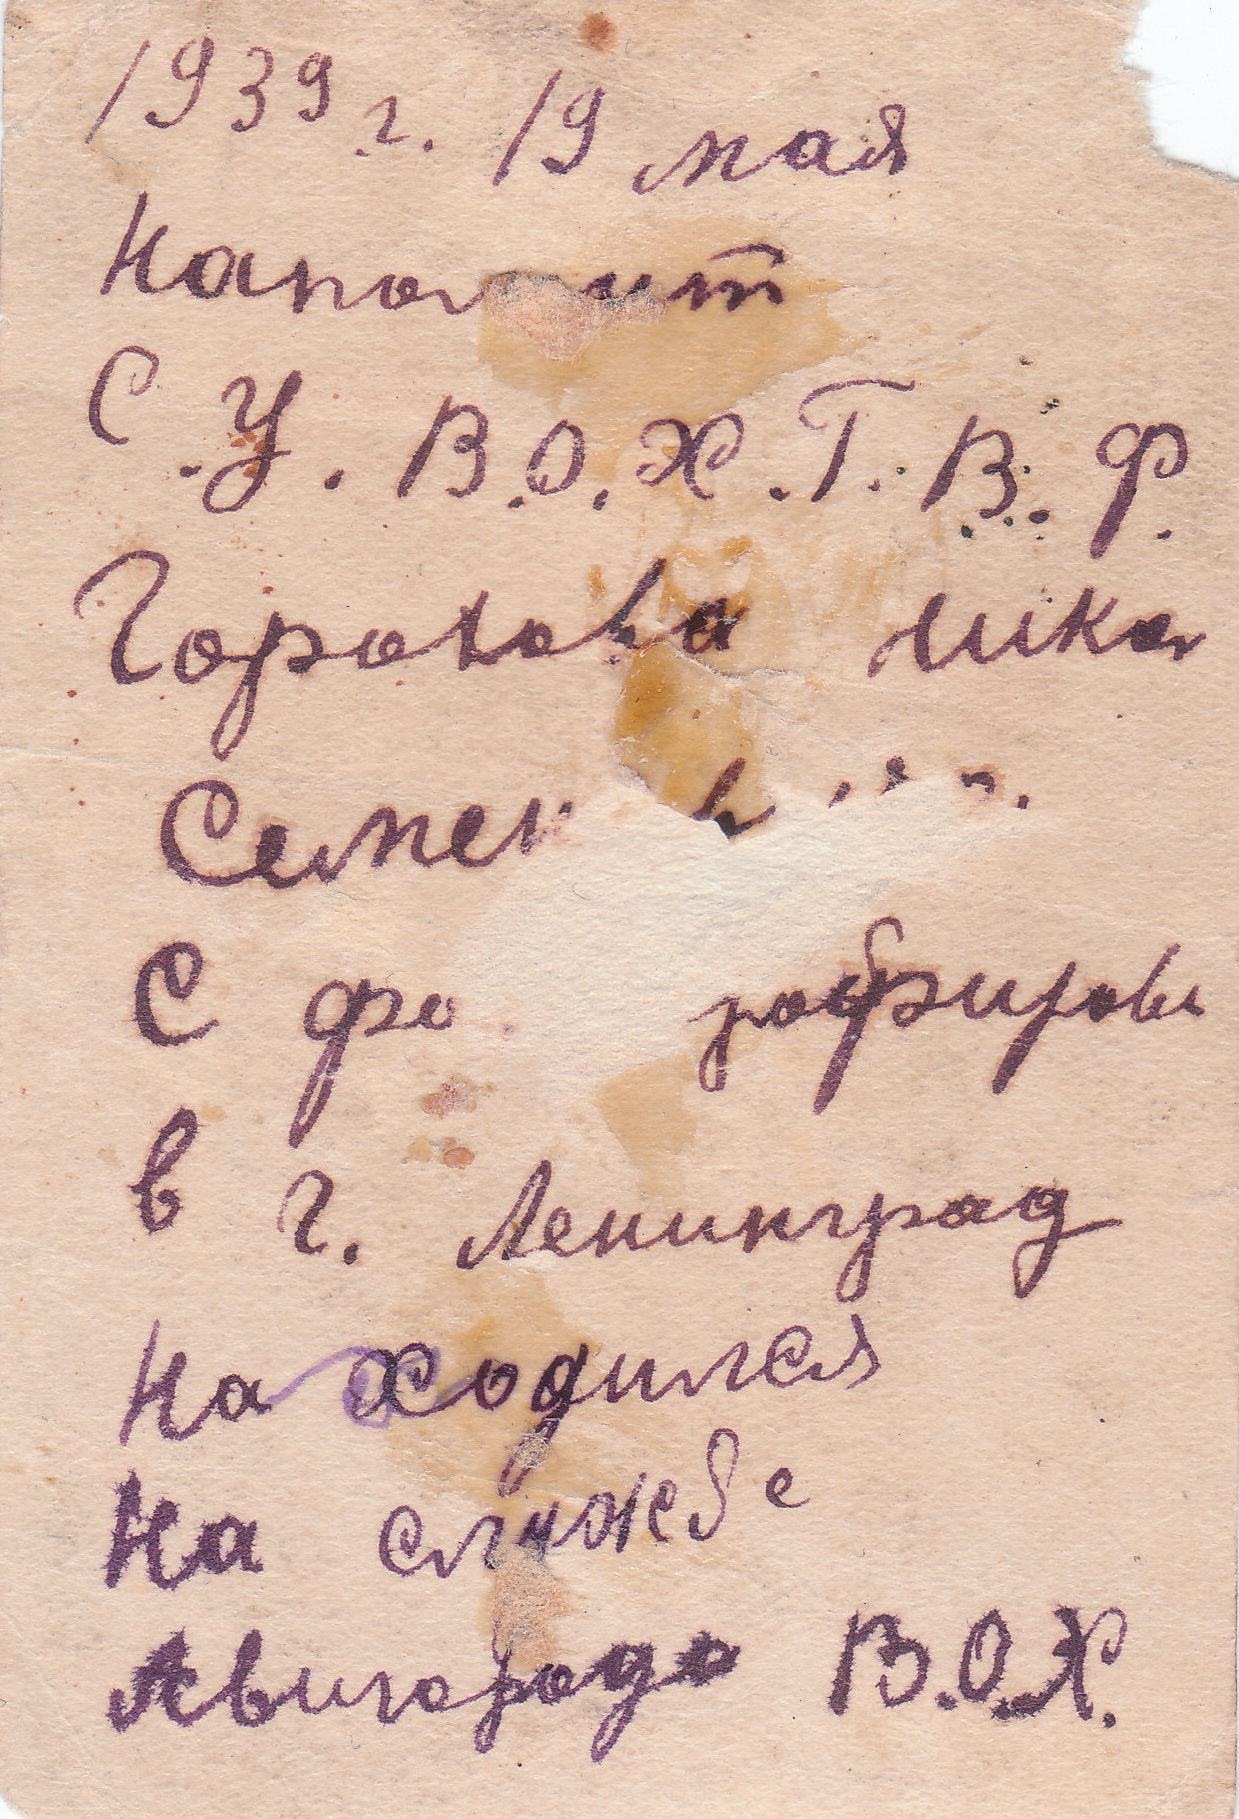 1939 г. 19 мая
С. У. В.О.Х.Г.В.Ф.
Горохова Никол
Семен
С фо графиров
в г. Ленинград
На ходился
На службе
Авигорода В.О.Х.